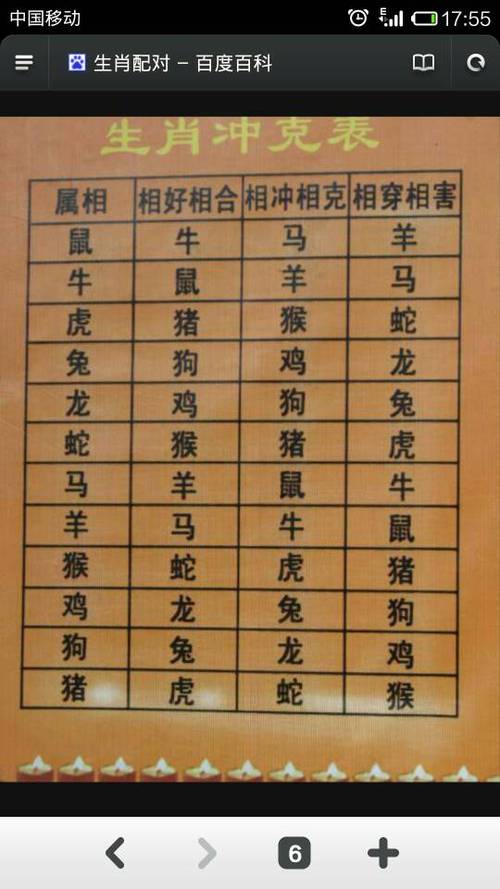 中国移动 E 17:55
生肖配对 - 百度百科
生肖冲克表
属相 相好相合 相冲相克 相穿相害
鼠 牛 马 羊
牛 鼠 羊 马
虎 猪 猴 蛇
兔 狗 鸡 龙
龙 鸡 狗 兔
蛇 猴 猪 虎
马 羊 鼠 牛
羊 马 牛 鼠
猴 蛇 虎 猪
鸡 龙 兔 狗
狗 兔 龙 鸡
猪 虎 蛇 猴
6